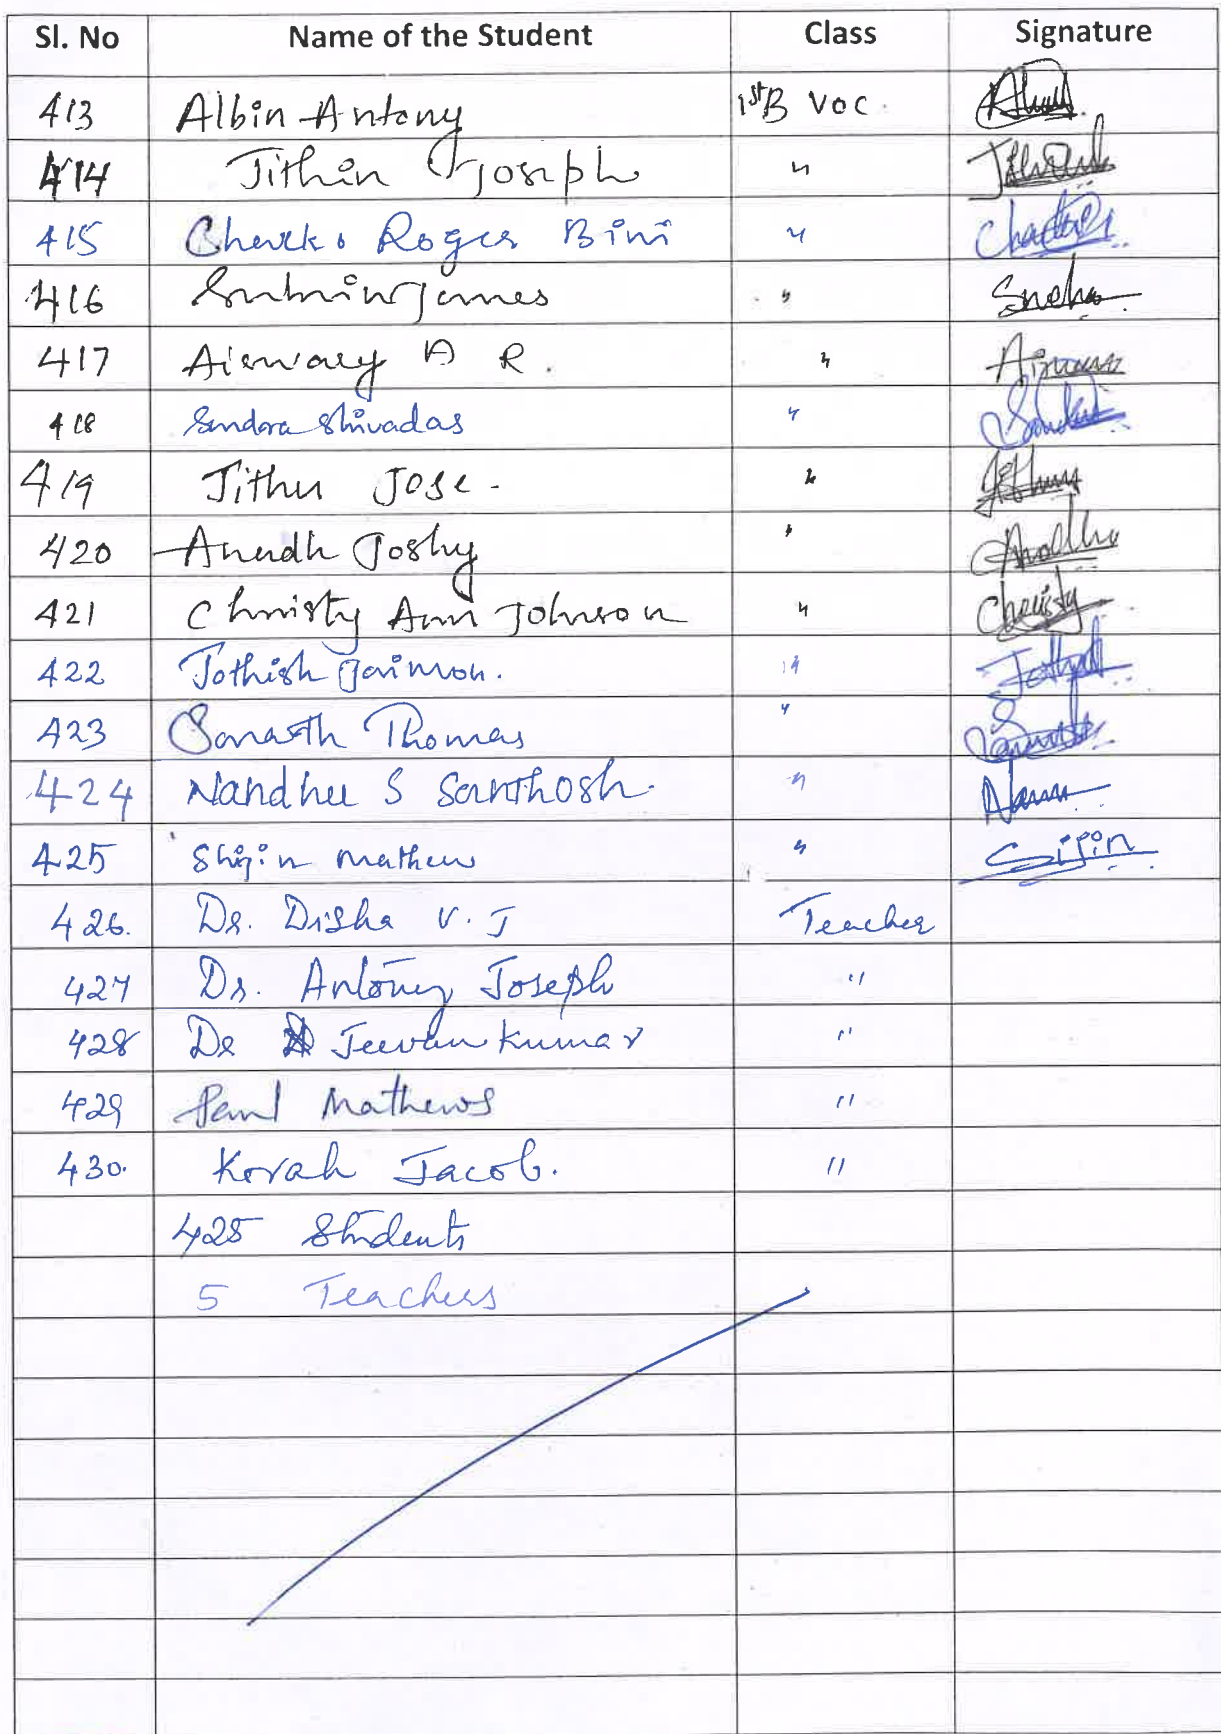 Sl. No Name of the Student Class Signature
413 Albin Antony 1st B Voc.
414 Jithin Joseph "
415 Roger Bini "
416 James " Sneha
417 A R. "
418 Sandra Shivadas "
419 Jithu Jose. " Jithu
420 Anudh Joshy "
421 Christy Ann Johnson " Christy
422 Jothish Jaimon. "
423 Sonath Thomas "
424 Nandhu S Santhosh. "
425 Shijin Mathew " Sijin
426. Dr. Disha V. J Teacher
427 Dr. Antony Joseph "
428 Dr Jeevan Kumar "
429 Paul Mathews "
430. Korah Jacob. "
425 Students
5 Teachers